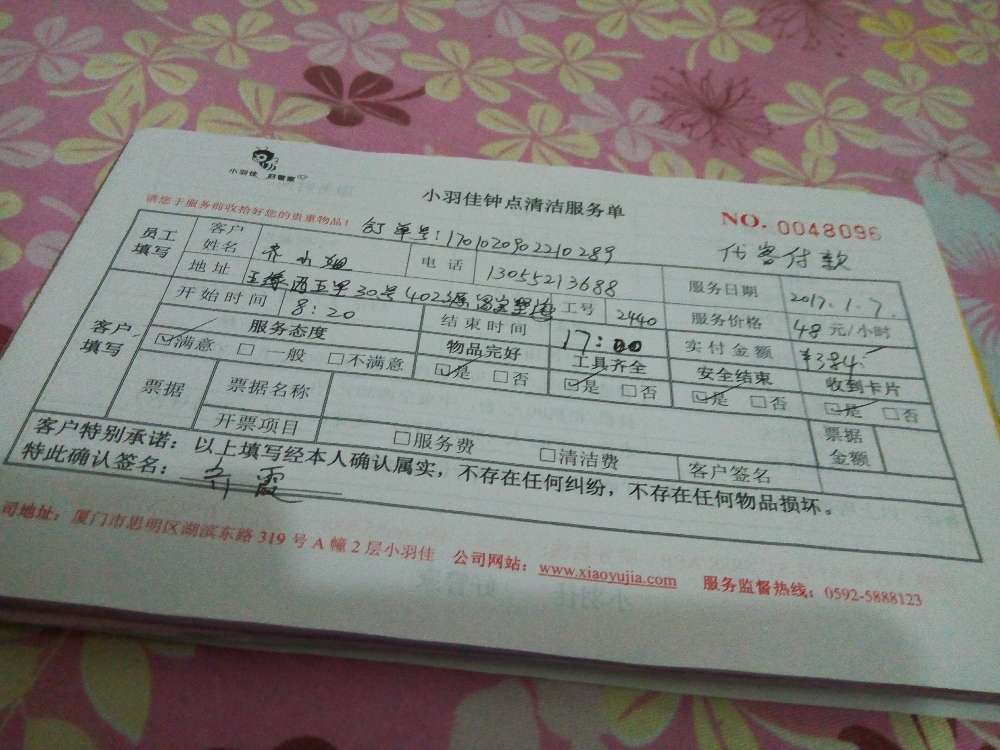 小羽佳 好管家
小羽佳钟点清洁服务单
NO. 0048096
请您于服务前收拾好您的贵重物品!
订单号:1701020902210289
代客付款
员工填写 客户姓名 齐小姐 电话 13055213688 服务日期 2017.1.7.
地址 30号402 工号 2440 服务价格 48元/小时
开始时间 8:20 结束时间 17:00 实付金额 ¥384
客户填写 服务态度 物品完好 工具齐全 安全结束 收到卡片
☑满意 □一般 □不满意 ☑是 □否 ☑是 □否 ☑是 □否 ☑是 □否
票据 票据名称 票据金额
开票项目 □服务费 □清洁费 客户签名
客户特别承诺:以上填写经本人确认属实,不存在任何纠纷,不存在任何物品损坏。
特此确认签名:齐霞
司地址:厦门市思明区湖滨东路319号A幢2层小羽佳 公司网站:www.xiaoyujia.com 服务监督热线:0592-5888123